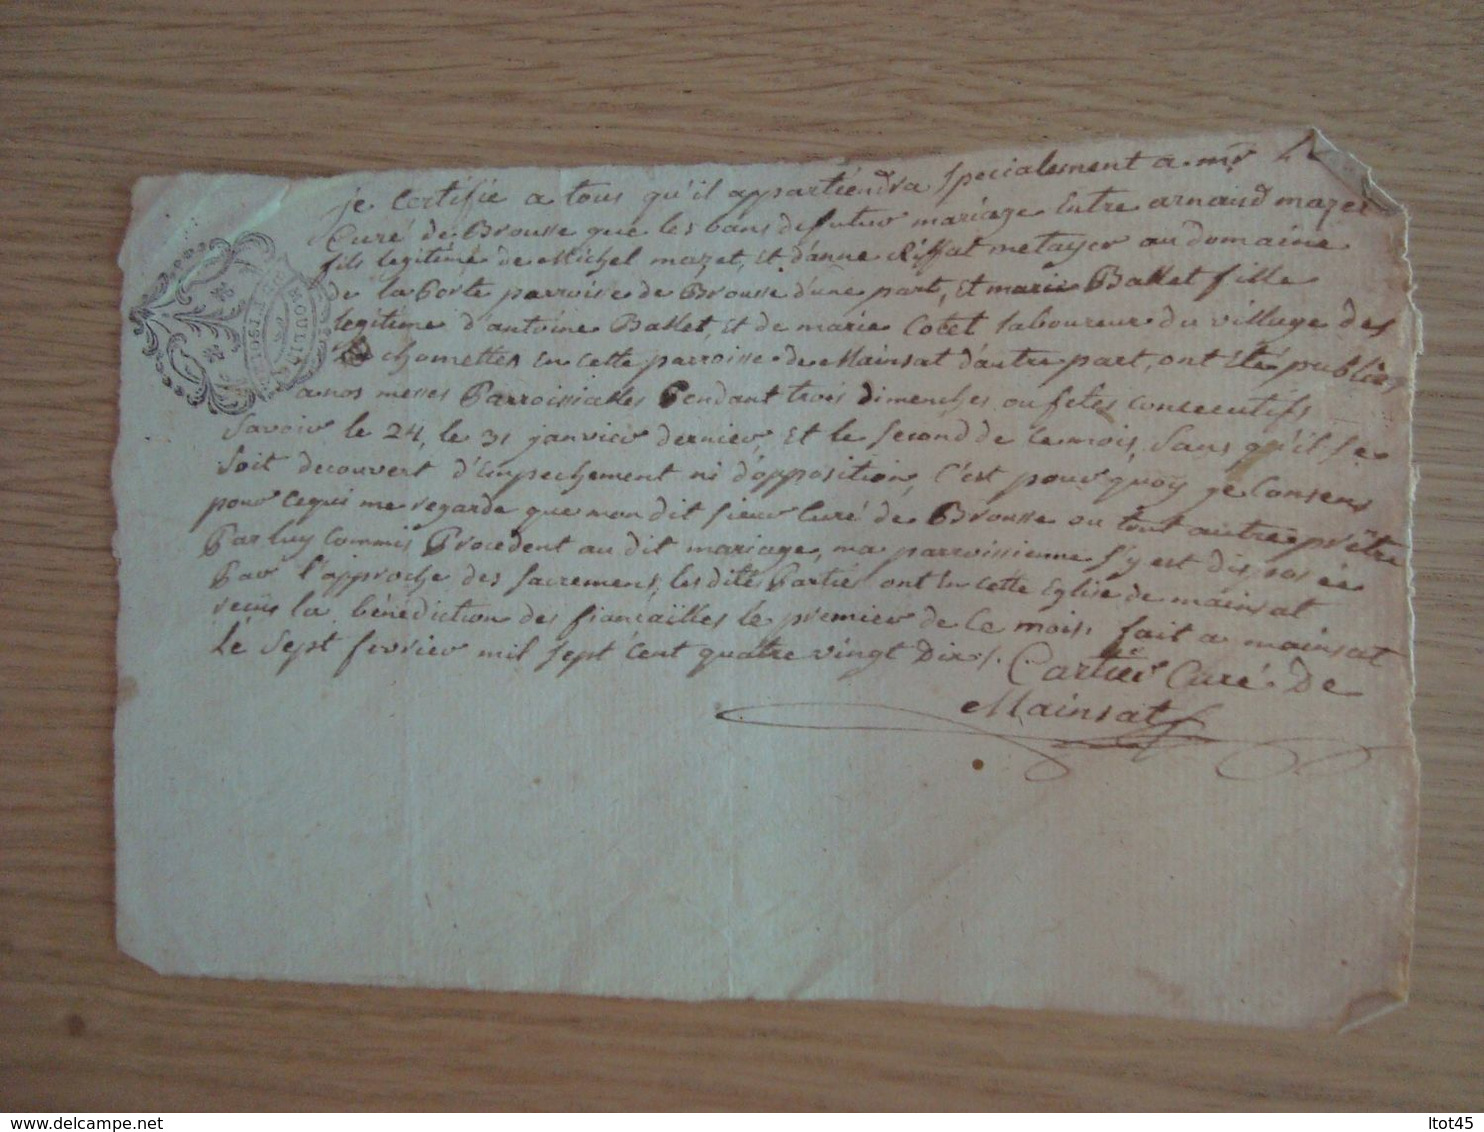 je certifie a tous qu'il appartiendra specialement a mr le
Curé de Brousse que les bans de futur mariage Entre arnaud mazet
fils legitime de Michel mazet, et d'anne Riffat metayer au domaine
de la Porte parroisse de Brousse d'une part, et marie Ballet fille
legitime d'antoine Ballet, et de marie Cotet laboureur du village des
chomettes en cette parroisse de Mainsat d'autre part, ont été publiés
a nos messes Parroissialles Pendant trois dimenches ou fetes consecutifs
Savoir le 24, le 31 janvier dernier, et le second de ce mois, sans qu'il se
soit decouvert d'Empechement ni d'opposition, c'est pour quoy je consens
pour ce qui me regarde que mon dit sieur Curé de Brousse ou tout autre prêtre
Par luy commis Procedent au dit mariage, ma parroissienne s'y est disposée
Par l'approche des sacremens, les dite Partie ont en cette Eglise de mainsat
reçus la bénédiction des fiançailles le premier de ce mois fait a mainsat
le sept fevrier mil sept cent quatre vingt dix.
Cartier Curé de
Mainsat
MOULINS
ltot45